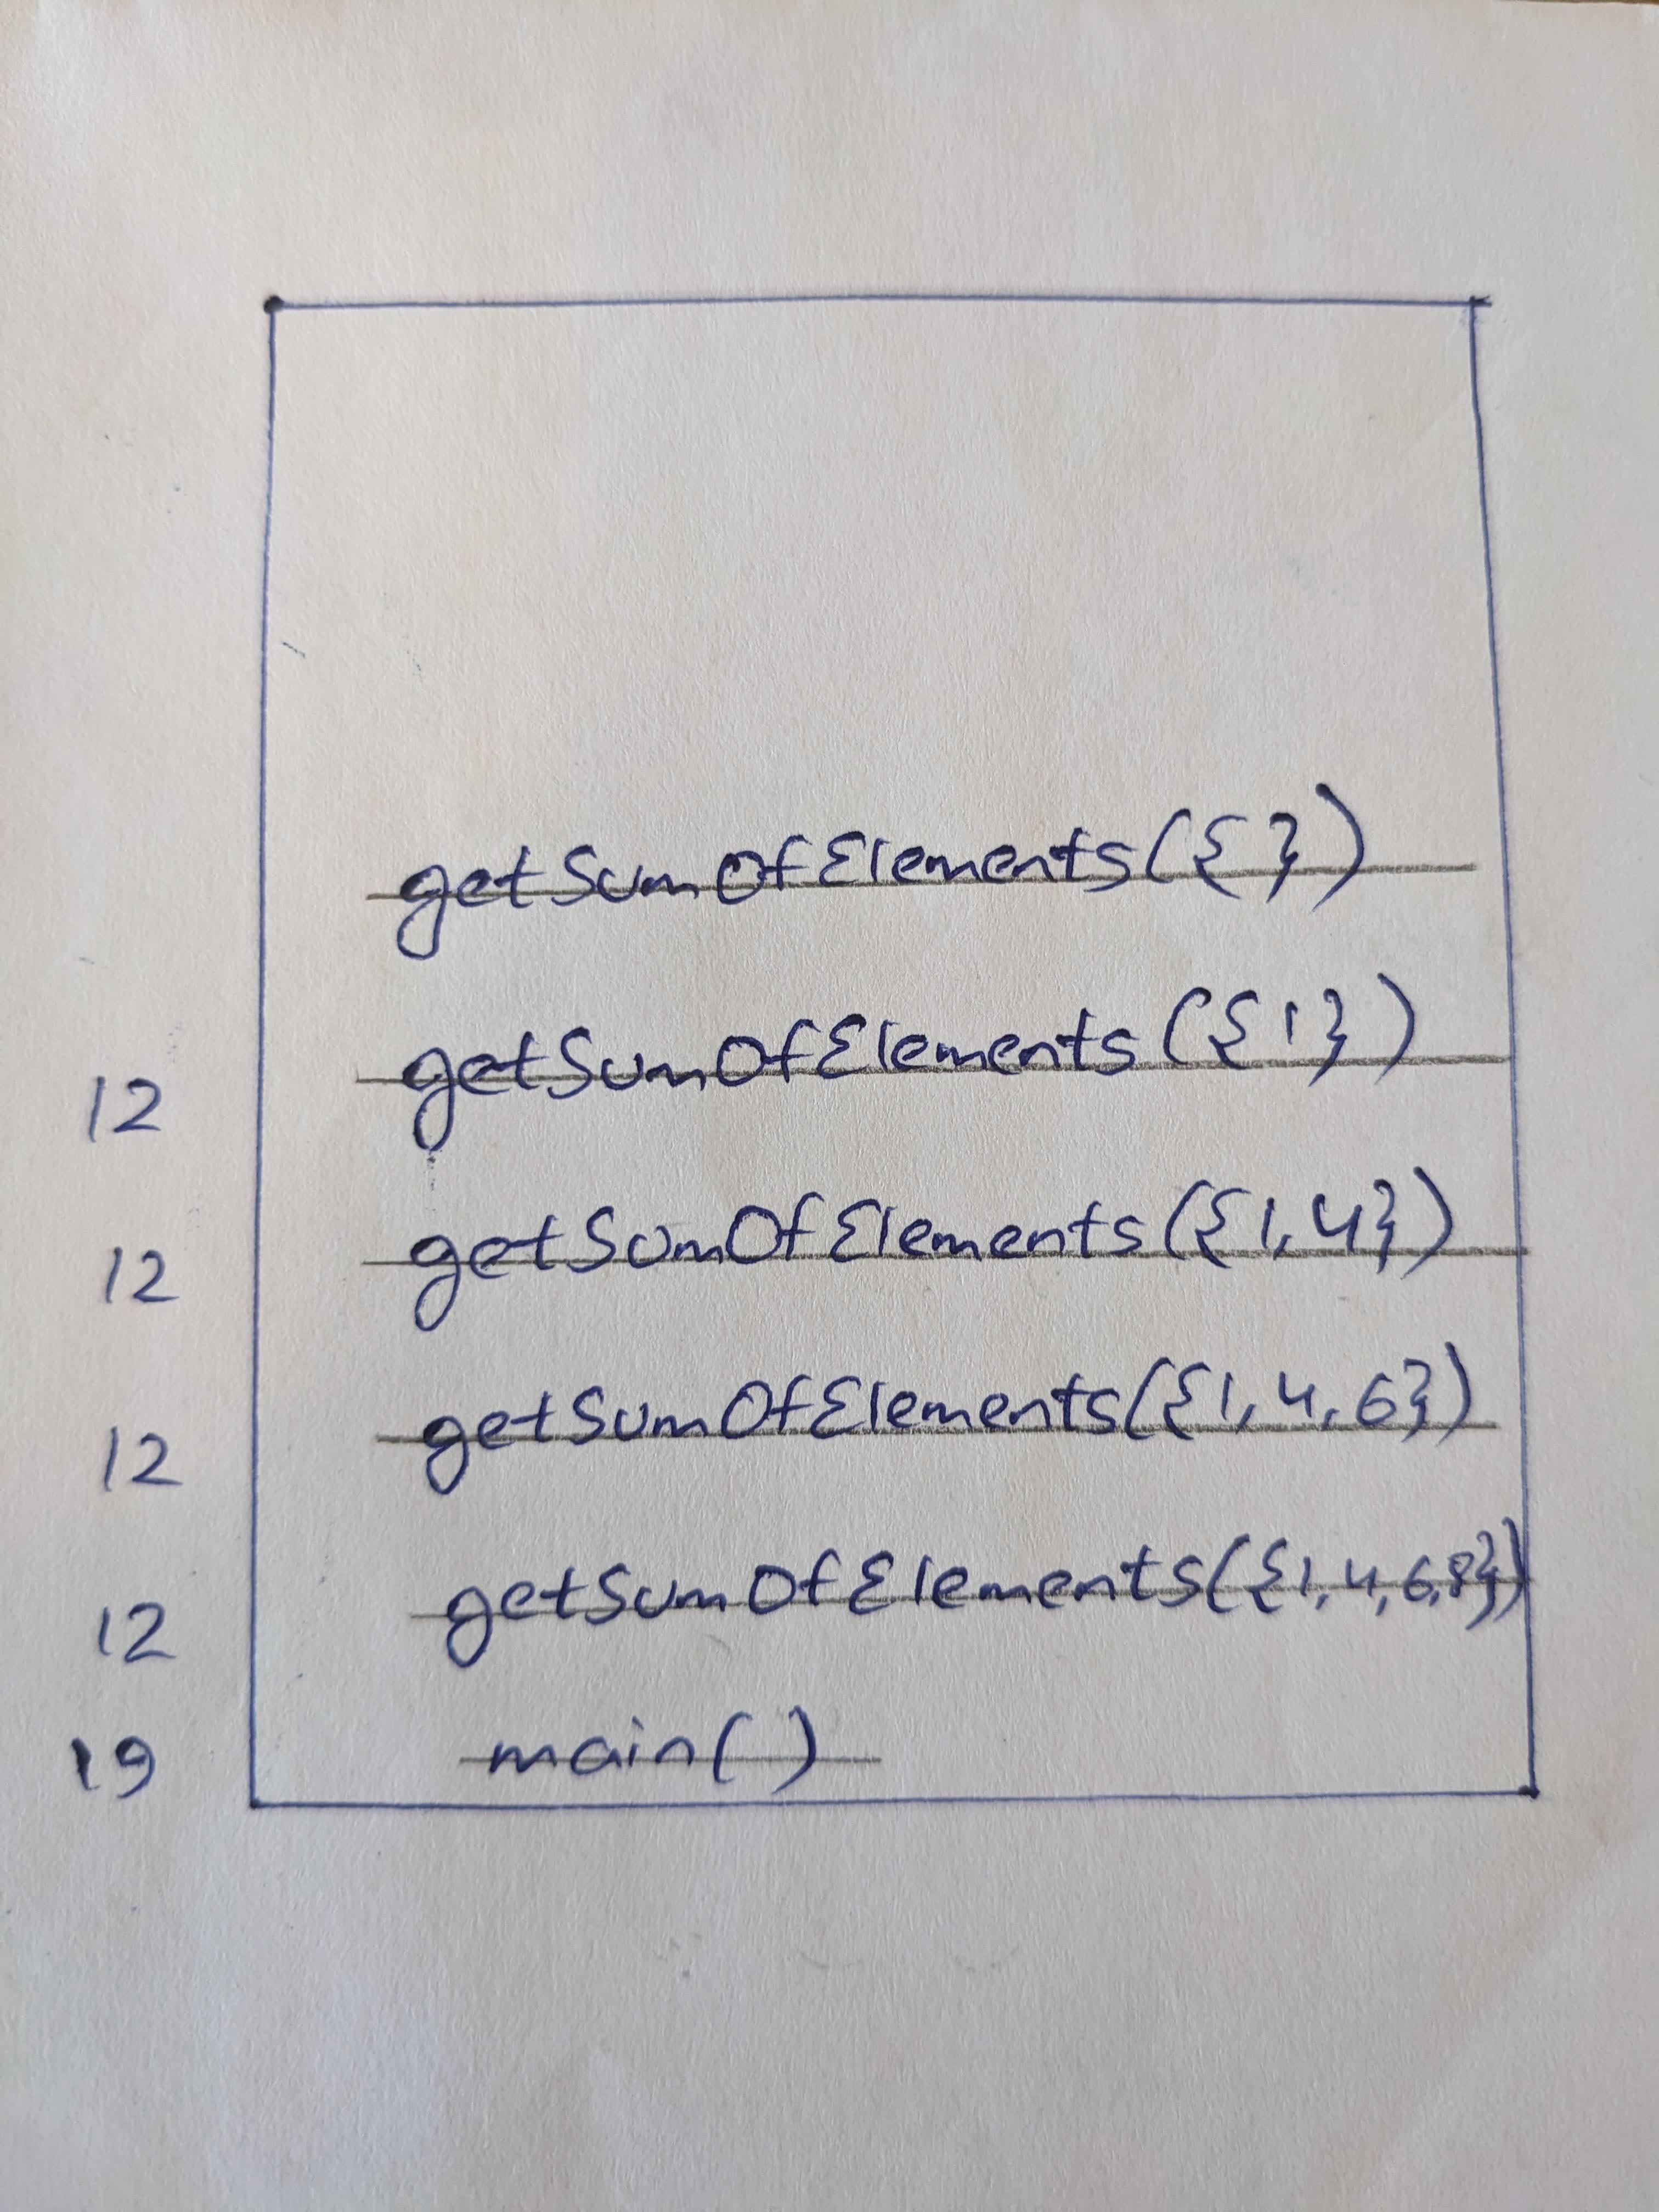 getSumOfElements({ })
12 getSumOfElements({1})
12 getSumOfElements({1, 4})
12 getSumOfElements({1, 4, 6})
12 getSumOfElements({1, 4, 6, 8})
19 main( )